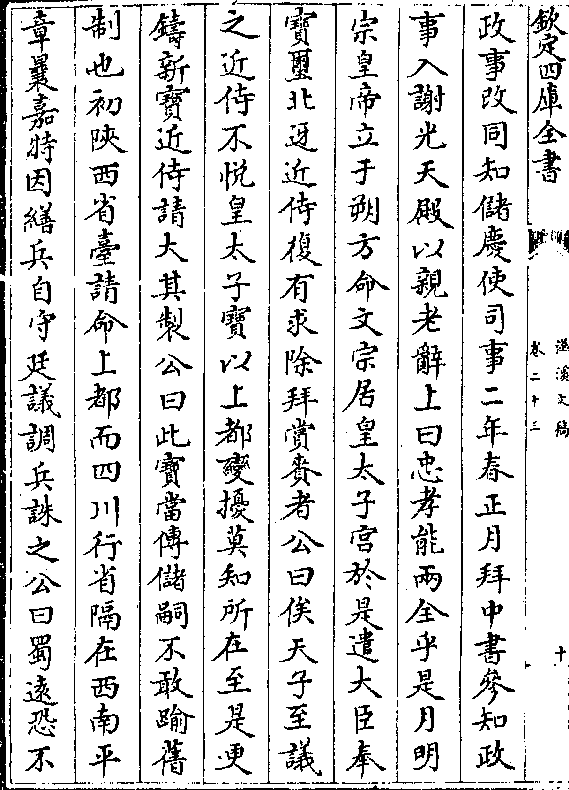 欽定四庫全書
滋溪文稿
卷二十三
十
政事改同知儲慶使司事二年春正月拜中書參知政
事入謝光天殿以親老辭上曰忠孝能兩全乎是月明
宗皇帝立于朔方命文宗居皇太子宮於是遣大臣奉
寶璽北迓近侍復有求除拜賞賚者公曰俟天子至議
之近侍不悅皇太子寶以上都變擾莫知所在至是更
鑄新寶近侍請大其製公曰此寶當傳儲嗣不敢踰舊
制也初陝西省臺請命上都而四川行省隔在西南平
章曩嘉特因繕兵自守廷議調兵誅之公曰蜀遠恐不